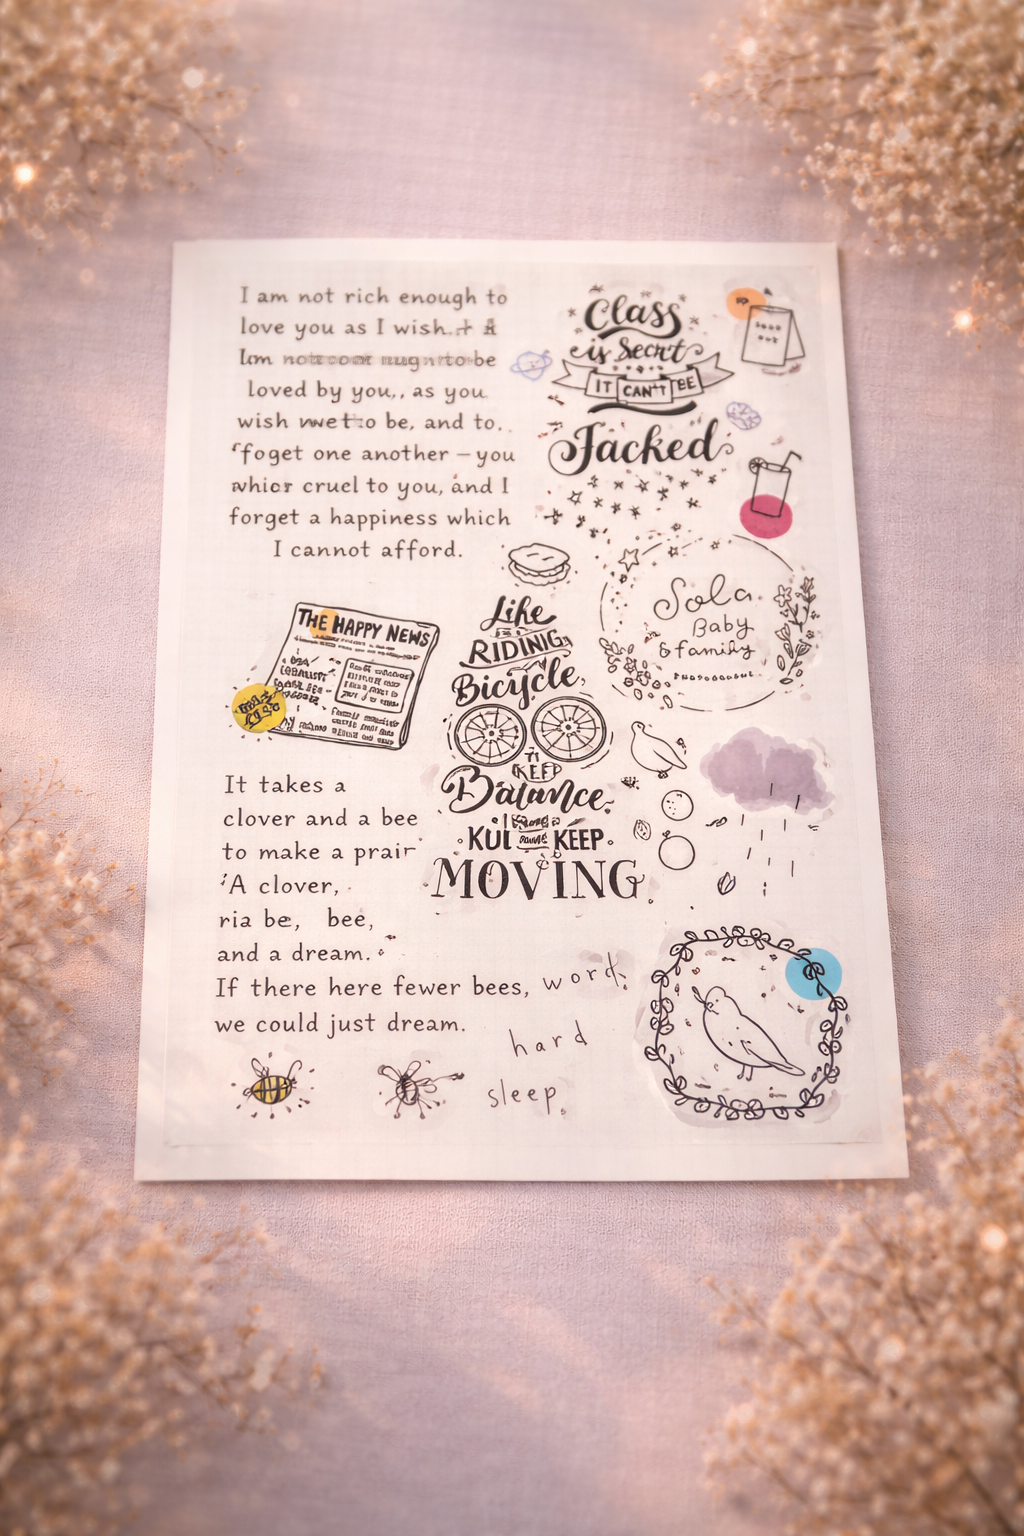 I am not rich enough to
love you as I wish.
be
loved by you,, as you
wish to be, and to..
foget one another – you
cruel to you, and I
forget a happiness which
I cannot afford.
Class
is
IT CAN'T BE
Jacked
THE HAPPY NEWS
Like
RIDINIG
Bicycle,
KEEP
Balance.
KUL KEEP
MOVING
Sola
Baby
& family
It takes a
clover and a bee
to make a prair
'A clover,
ria be, bee,
and a dream.
If there here fewer bees,
we could just dream.
word.
hard
sleep.